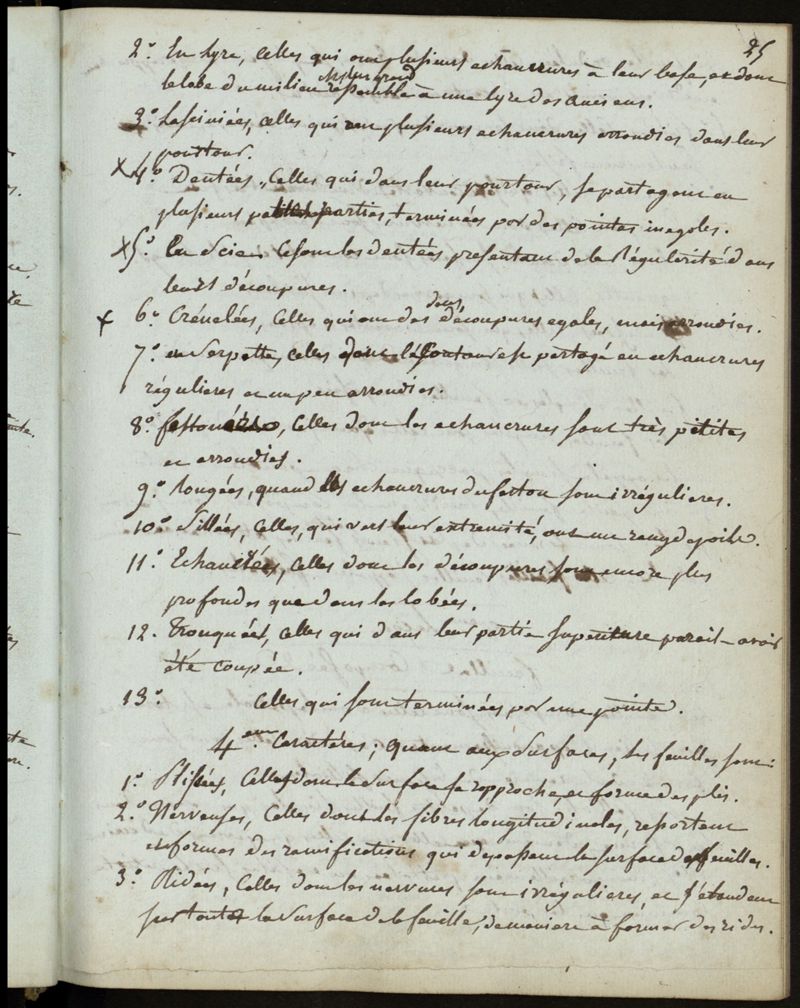 25
2° En lyre, Celles qui ont plusieurs echancrures à leur base, et dont
le lobe du milieu plus grand ressemble à une lyre des anciens.
3° Lasciniées, celles qui ont plusieurs echancrures arrondies dans leur
pourtour.
x 4° Dentées, Celles qui dans leur pourtour, se partagent en
plusieurs petites parties, terminées par des pointes inegales.
x 5° En Scie, Ce sont les dentées presentant de la Régularité dans
leurs découpures.
x 6° Crénelées, Celles qui ont des dents, découpures egales, mais arrondies.
7° en Serpette, celles dont le Contour est partagé en echancrures
régulieres et un peu arrondies.
8° festonées, Celles dont les echancrures sont très petites
et arrondies.
9° Rongées, quand les echancrures du feston sont irrégulieres.
10° Cillées, Celles, qui vers leur extremité, ont un rang de poils.
11° Echancrées, Celles dont les découpures sont encore plus
profondes que dans les lobées.
12. Tronquées, Celles qui dans leur partie superieure parait avoir
été coupée.
13° Celles qui sont terminées par une pointe.
4eme Caractéres; Quant aux Surfaces, les feuilles sont:
1° Plissées, Celles dont la Surface se rapproche, et forme des plis.
2° Nerveuses, Celles dont les fibres longitudinales, repartent
et forment des ramifications qui depassent la surface des feuilles.
3° Ridées, Celles dont les nervures sont irrégulieres, et s'étendent
sur toute la Surface de la feuille, de maniere à former des rides.